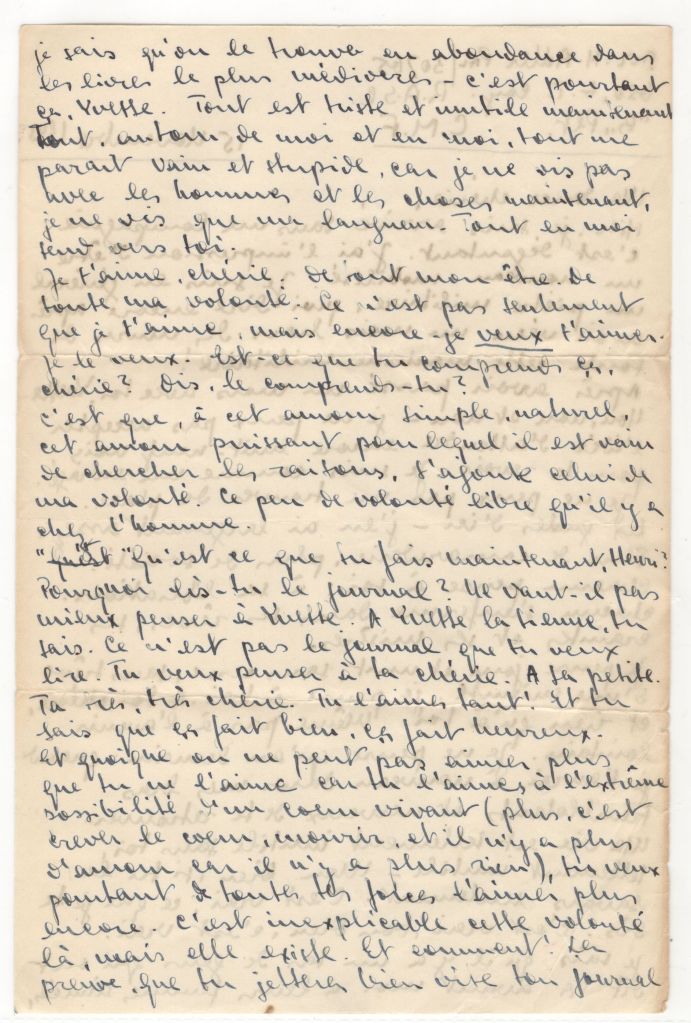 je sais qu'on le trouve en abondance dans
les livres le plus médiocres - c'est pourtant
ça, Yvette. Tout est triste et inutile maintenant
Tout, autour de moi et en moi, tout me
parait vain et stupide, car je ne vis pas
avec les hommes et les choses maintenant,
je ne vis que ma langueur. Tout en moi
tend vers toi.
Je t'aime, chérie. De tout mon être. De
toute ma volonté. Ce n'est pas seulement
que je t'aime, mais encore je veux t'aimer.
Je le veux. Est-ce que tu comprends ça,
chérie? Dis, le comprends-tu?
C'est que, à cet amour simple, naturel,
cet amour puissant pour lequel il est vain
de chercher les raisons, s'ajoute celui de
ma volonté. Ce peu de volonté libre qu'il y a
chez l'homme.
"Qu'est ce que tu fais maintenant, Henri?
Pourquoi lis-tu le journal? Ne vaut-il pas
mieux penser à Yvette. A Yvette la tienne, tu
sais. Ce n'est pas le journal que tu veux
lire. Tu veux penser à ta chérie. A ta petite.
Ta très, très chérie. Tu l'aimes tant! Et tu
sais que ça fait bien, ça fait heureux.
Et quoique on ne peut pas aimer plus
que tu ne l'aime car tu l'aimes à l'extrême
possibilité d'un coeur vivant (plus, c'est
crever le coeur, mourir, et il n'y a plus
d'amour car il n'y a plus rien), tu veux
pourtant de toutes tes forces l'aimer plus
encore. C'est inexplicable cette volonté
là, mais elle existe. Et comment! La
preuve, que tu jetteras bien vite ton journal